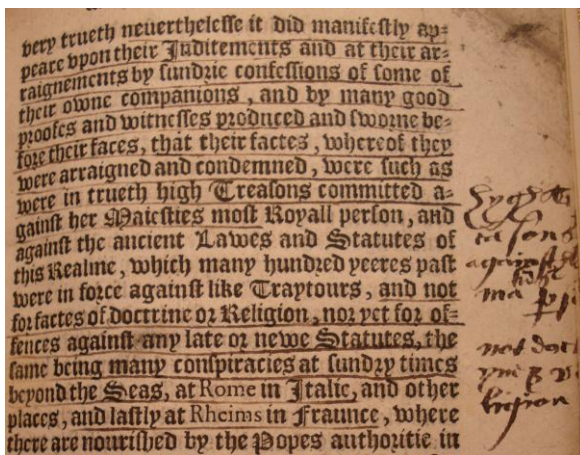 very trueth neuerthelesse it did manifestly ap-
peare vpon their Inditements and at their ar-
raignements by sundrie confessions of some of
their owne companions, and by many good
proofes and witnesses produced and sworne be-
fore their faces, that their factes, whereof they
were arraigned and condemned, were such as
were in trueth high Treasons committed a-
gainst her Maiesties most Royall person, and
against the ancient Lawes and Statutes of
this Realme, which many hundred yeeres past
were in force against like Traytours, and not
for factes of doctrine or Religion, nor yet for of-
fences against any late or newe Statutes, the
same being many conspiracies at sundry times
beyond the Seas, at Rome in Italie, and other
places, and lastly at Rheims in Fraunce, where
there are nourished by the Popes authoritie in
against
not